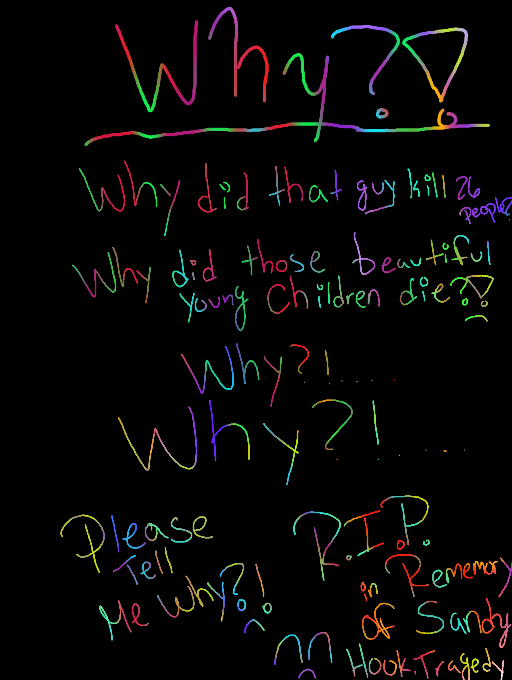 Why?!
Why did that guy kill 26
people?
Why did those beautiful
young Children die?!
Why?!......
Why?!......
Please
Tell
Me Why?!
R.I.P.
in Rememory
Of Sandy
Hook.Tragedy